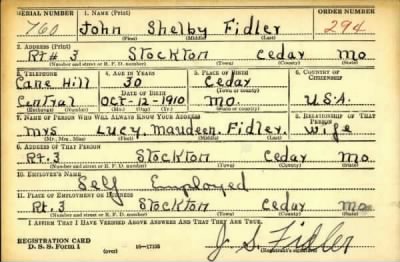 SERIAL NUMBER 1. NAME (Print) ORDER NUMBER
760 John Shelby Fidler 294
(First) (Middle) (Last)
2. ADDRESS (Print)
Rt# 3 Stockton Cedar Mo
(Number and street or R. F. D. number) (Town) (County) (State)
3. TELEPHONE 4. AGE IN YEARS 5. PLACE OF BIRTH 6. COUNTRY OF CITIZENSHIP
Cane Hill 30 Cedar
DATE OF BIRTH (Town or county)
Central Oct-12-1910 Mo. U.S.A.
(Exchange) (Number) (Mo.) (Day) (Yr.) (State or country)
7. NAME OF PERSON WHO WILL ALWAYS KNOW YOUR ADDRESS 8. RELATIONSHIP OF THAT PERSON
Mrs Lucy, Maudeen, Fidler, wife
(Mr., Mrs., Miss) (First) (Middle) (Last)
9. ADDRESS OF THAT PERSON
Rt. 3 Stockton Cedar Mo.
(Number and street or R. F. D. number) (Town) (County) (State)
10. EMPLOYER'S NAME
Self Employed
11. PLACE OF EMPLOYMENT OR BUSINESS
Rt. 3 Stockton Cedar Mo.
(Number and street or R. F. D. number) (Town) (County) (State)
I AFFIRM THAT I HAVE VERIFIED ABOVE ANSWERS AND THAT THEY ARE TRUE.
REGISTRATION CARD
D. S. S. Form 1 (over) 16-17105 J. S. Fidler
(Registrant's signature)